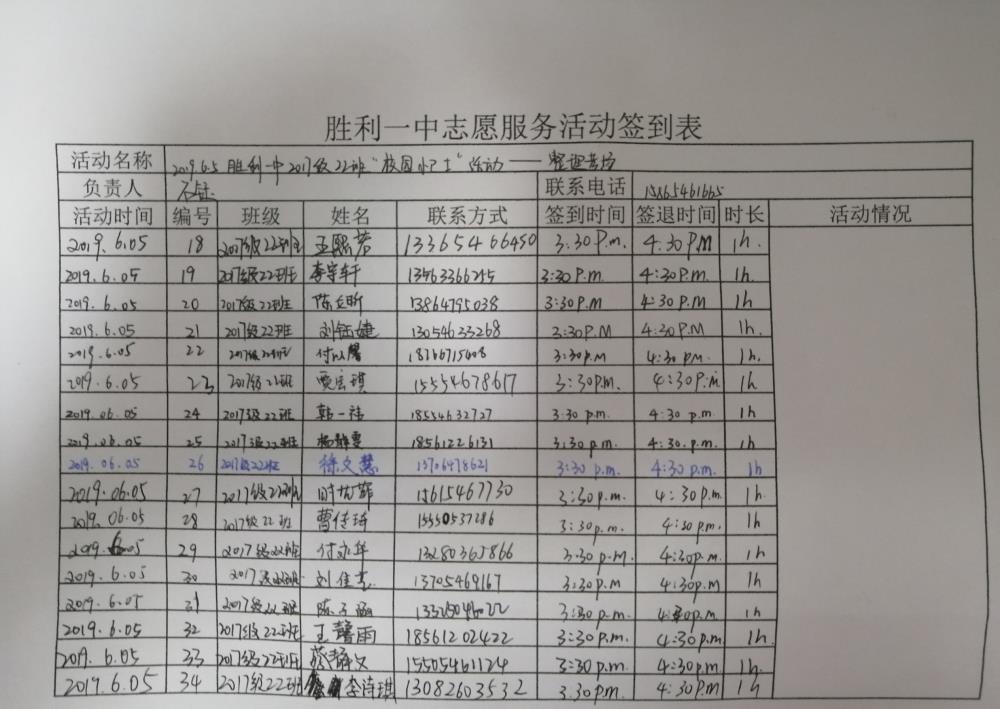 胜利一中志愿服务活动签到表
活动名称 2019.6.5 胜利一中2017级22班"校园小卫士"活动——整理考场
负责人 联系电话 15865461665
活动时间 编号 班级 姓名 联系方式 签到时间 签退时间 时长 活动情况
2019.6.05 18 2017级22班 王熙芳 13365466450 3:30P.m. 4:30P.M 1h.
2019.6.05 19 2017级22班 李宇轩 13563366245 3:30P.m. 4:30P.M. 1h.
2019.6.05 20 2017级22班 13864795038 3:30P.M 4:30P.M. 1h
2019.6.05 21 2017级22班 刘钰婕 13054633268 3:30P.M 4:30P.M 1h.
2019.6.05 22 2017级22班 3:30P.M 4:30P.M. 1h.
2019.6.05 23 2017级22班 贾宏琪 15554678617 3:30P.M. 4:30P.M 1h
2019.06.05 24 2017级22班 韩一祎 18554632727 3:30 p.m. 4:30 p.m. 1h
2019.06.05 25 2017级22班 杨静雯 18561226131 3:30p.m. 4:30.p.m. 1h
2019.06.05 26 2017级22班 徐文慧 13706478621 3:30 p.m. 4:30 p.m. 1h
2019.06.05 27 2017级22班 15615467730 3:30p.m. 4:30p.m. 1h.
2019.06.05 28 2017级22班 曹传琦 15550537286 3:30p.m. 4:30p.m. 1h
2019.6.05 29 2017级22班 13280365866 3:30p.m. 4:30p.m. 1h
2019.6.05 30 2017级22班 刘佳 13705469167 3:30P.M 4:30P.M. 1h
2019.6.05 31 2017级22班 陈子涵 3:30p.m. 4:30p.m. 1h
2019.6.05 32 2017级22班 王馨雨 18561202422 3:30P.m. 4:30p.m. 1h.
2019.6.05 33 2017级22班 蔡静文 15505461124 3:30P.m. 4:30p.m. 1h.
2019.6.05 34 2017级22班 李诗琪 13082603532 3.30P.m. 4:30P.M 1h